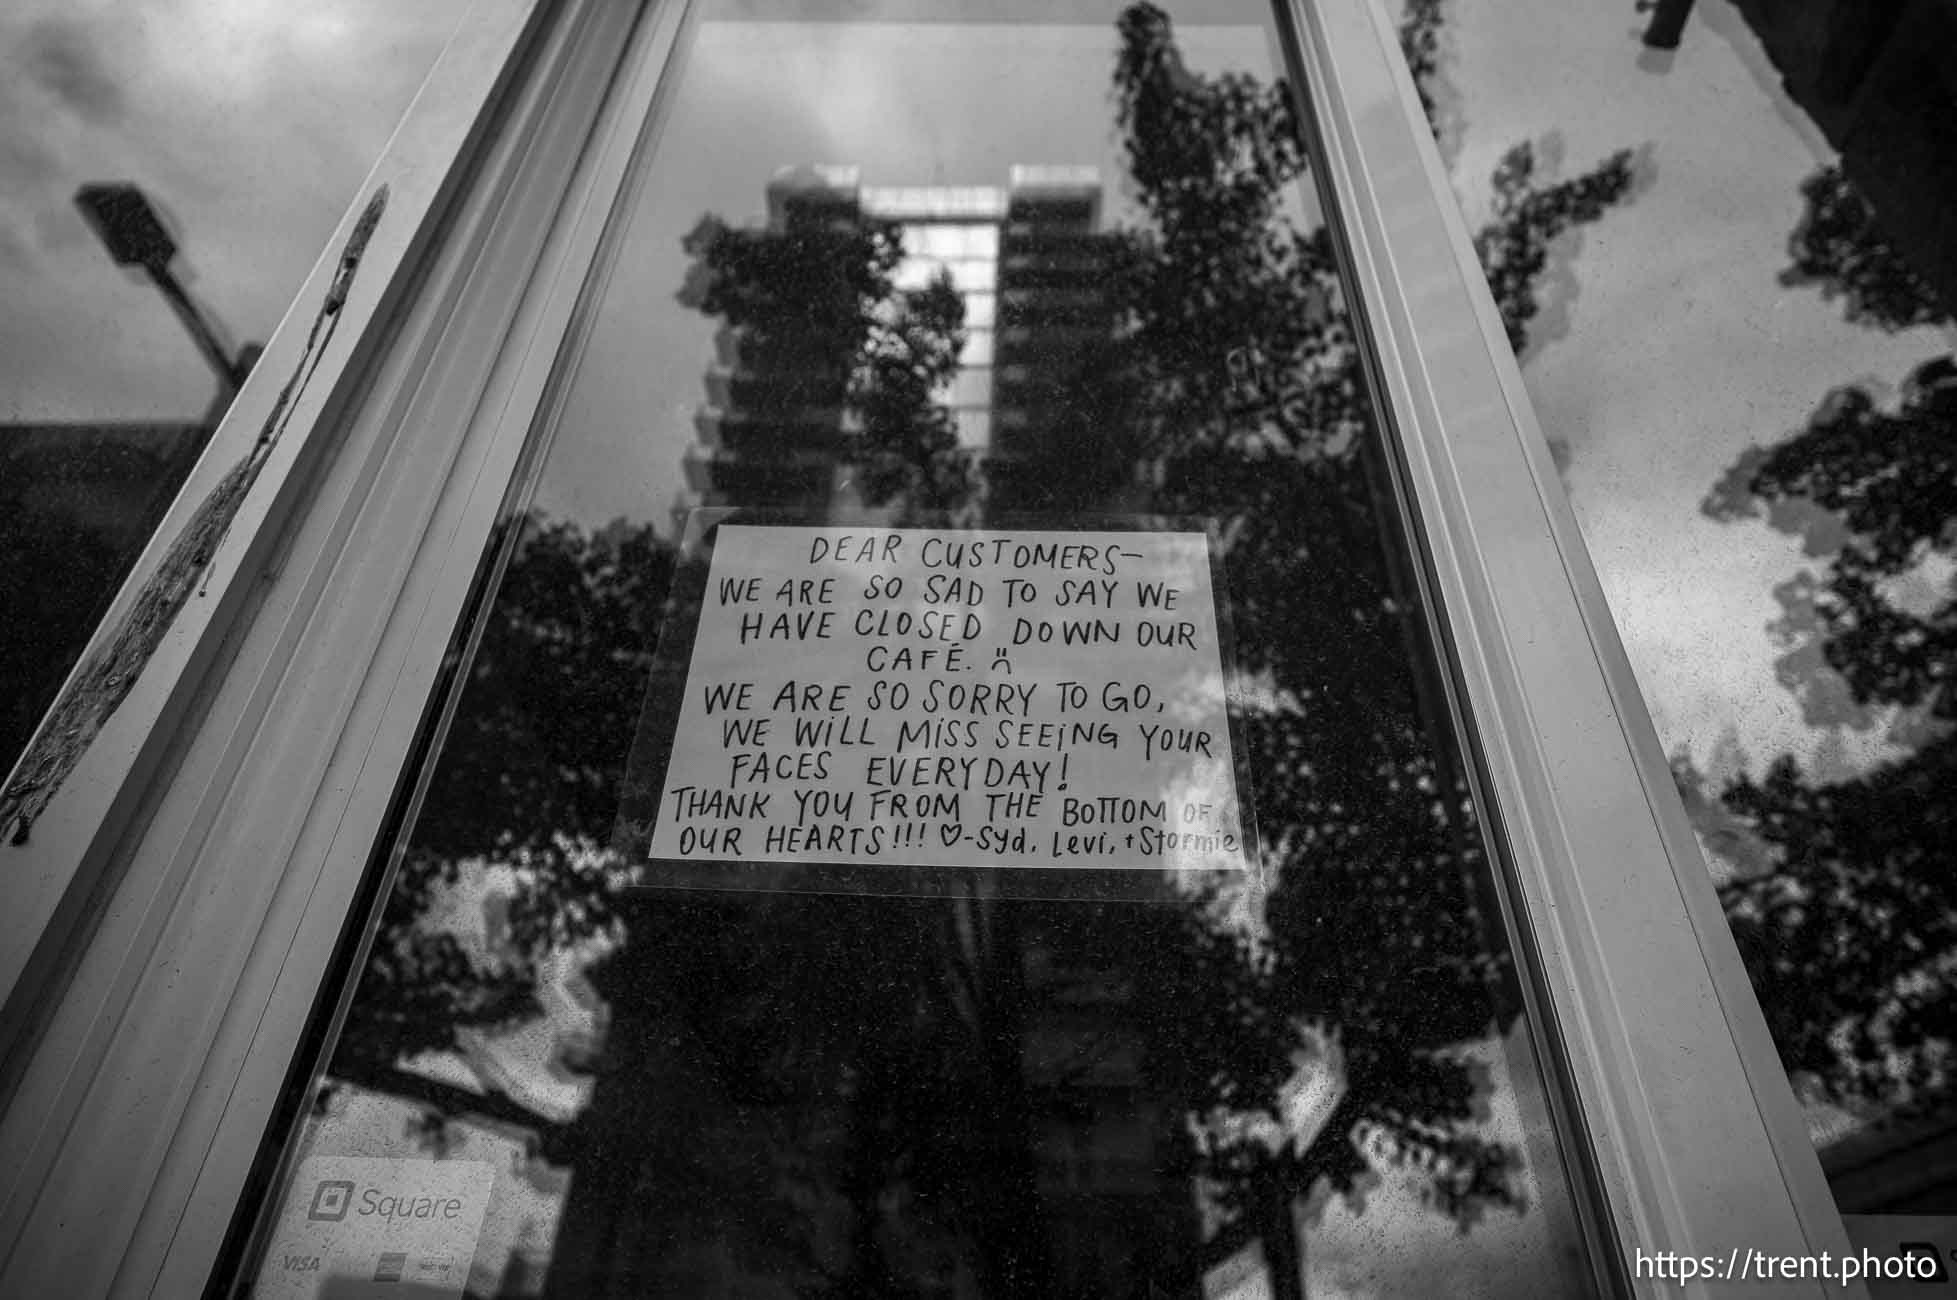 DEAR CUSTOMERS—
WE ARE SO SAD TO SAY WE
HAVE CLOSED DOWN OUR
CAFÉ. :(
WE ARE SO SORRY TO GO,
WE WiLL MiSS SEEiNG YOUR
FACES EVERYDAY!
THANK YOU FROM THE BOTTOM OF
OUR HEARTS!!! ♡-Syd, Levi, + Stormie
Square
VISA
https://trent.photo